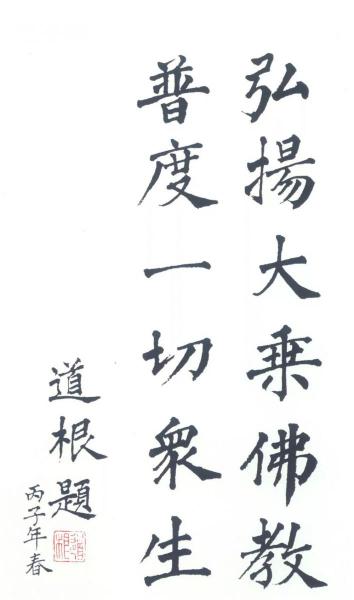 弘揚大乗佛教
普度一切眾生
道根題
丙子年春
道根